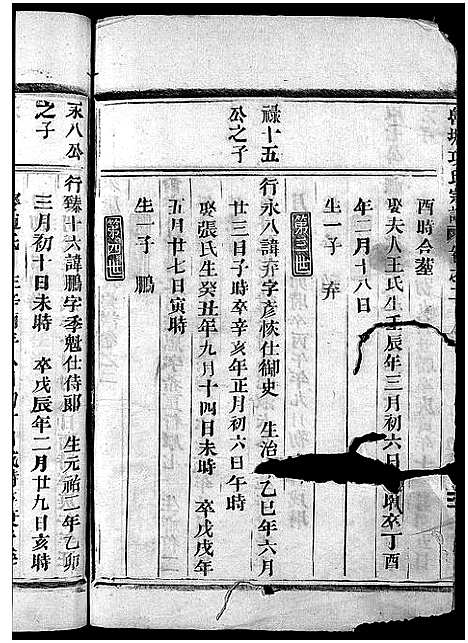 酉時合塟
娶夫人王氏生壬辰年三月初六日 時卒丁酉
年二月十八日
生一子弃
第三世
祿十五
公之子
行永八諱弃字彦恢仕御史 生治 乙巳年六月
廿三日子時卒辛亥年正月初六日午時
娶張氏生癸丑年九月十四日未時 卒戊戌年
五月廿七日寅時
生一子鵬
第四世
永八公
之子
行臻十六諱鵬字李魁仕侍郎 生元祐二年乙卯
三月初十日未時 卒戊辰年二月廿九日亥時